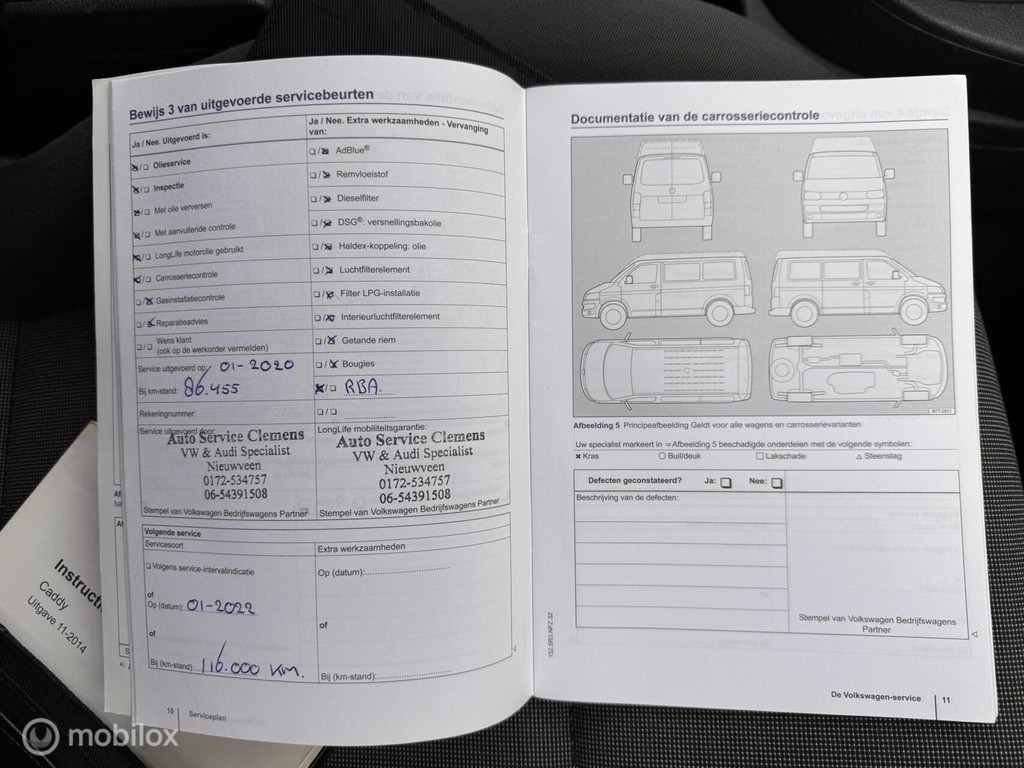 Bewijs 3 van uitgevoerde servicebeurten
Ja / Nee. Uitgevoerd is:
Olieservice
Inspectie
Met olie verversen
Met aanvullende controle
LongLife motorolie gebruikt
Carrosseriecontrole
Gasinstallatiecontrole
Reparatieadvies
Wens klant
(ook op de werkorder vermelden)
Service uitgevoerd op: 01-2020
Bij km-stand: 86.455
Rekeningnummer:
Service uitgevoerd door:
Auto Service Clemens
VW & Audi Specialist
Nieuwveen
0172-534757
06-54391508
Stempel van Volkswagen Bedrijfswagens Partner
Ja / Nee. Extra werkzaamheden - Vervanging
van:
AdBlue®
Remvloeistof
Dieselfilter
DSG®: versnellingsbakolie
Haldex-koppeling: olie
Luchtfilterelement
Filter LPG-installatie
Interieurluchtfilterelement
Getande riem
Bougies
RBA.
LongLife mobiliteitsgarantie:
Auto Service Clemens
VW & Audi Specialist
Nieuwveen
0172-534757
06-54391508
Stempel van Volkswagen Bedrijfswagens Partner
Volgende service
Servicesoort
Volgens service-intervalindicatie
of
Op (datum): 01-2022
of
Bij (km-stand): 116.000 KM.
Extra werkzaamheden
Op (datum):
of
Bij (km-stand):
10 Serviceplan
Documentatie van de carrosseriecontrole
B7T-0611
Afbeelding 5 Principeafbeelding Geldt voor alle wagens en carrosserievarianten
Uw specialist markeert in ⇒ Afbeelding 5 beschadigde onderdelen met de volgende symbolen:
× Kras ○ Buil/deuk □ Lakschade △ Steenslag
Defecten geconstateerd? Ja: Nee:
Beschrijving van de defecten:
Stempel van Volkswagen Bedrijfswagens
Partner
152.5R3.NFZ.32
De Volkswagen-service 11
Instructi
Caddy
Uitgave 11-2014
mobilox